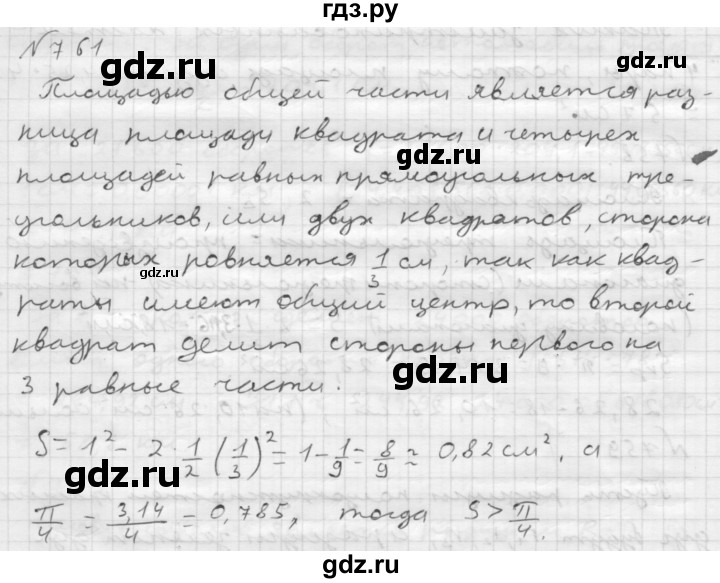 гдз.ру
N 761
gdz.ru
gdz.ru
Площадью общей части является раз-
ница площади квадрата и четырех
gdz.ru
площадей равных прямоугольных тре-
угольников, или двух квадратов, сторона
которых ровняется 1/3 см, так как квад-
gdz.ru
раты имеют общий центр, то второй
квадрат делит стороны первого на
gdz.ru
3 равные части.
S = 1² - 2 · 1/2 (1/3)² = 1 - 1/9 = 8/9 ≈ 0,82 см², а
gdz.ru
π/4 = 3,14/4 = 0,785, тогда S > π/4.
gdz.ru
gdz.ru